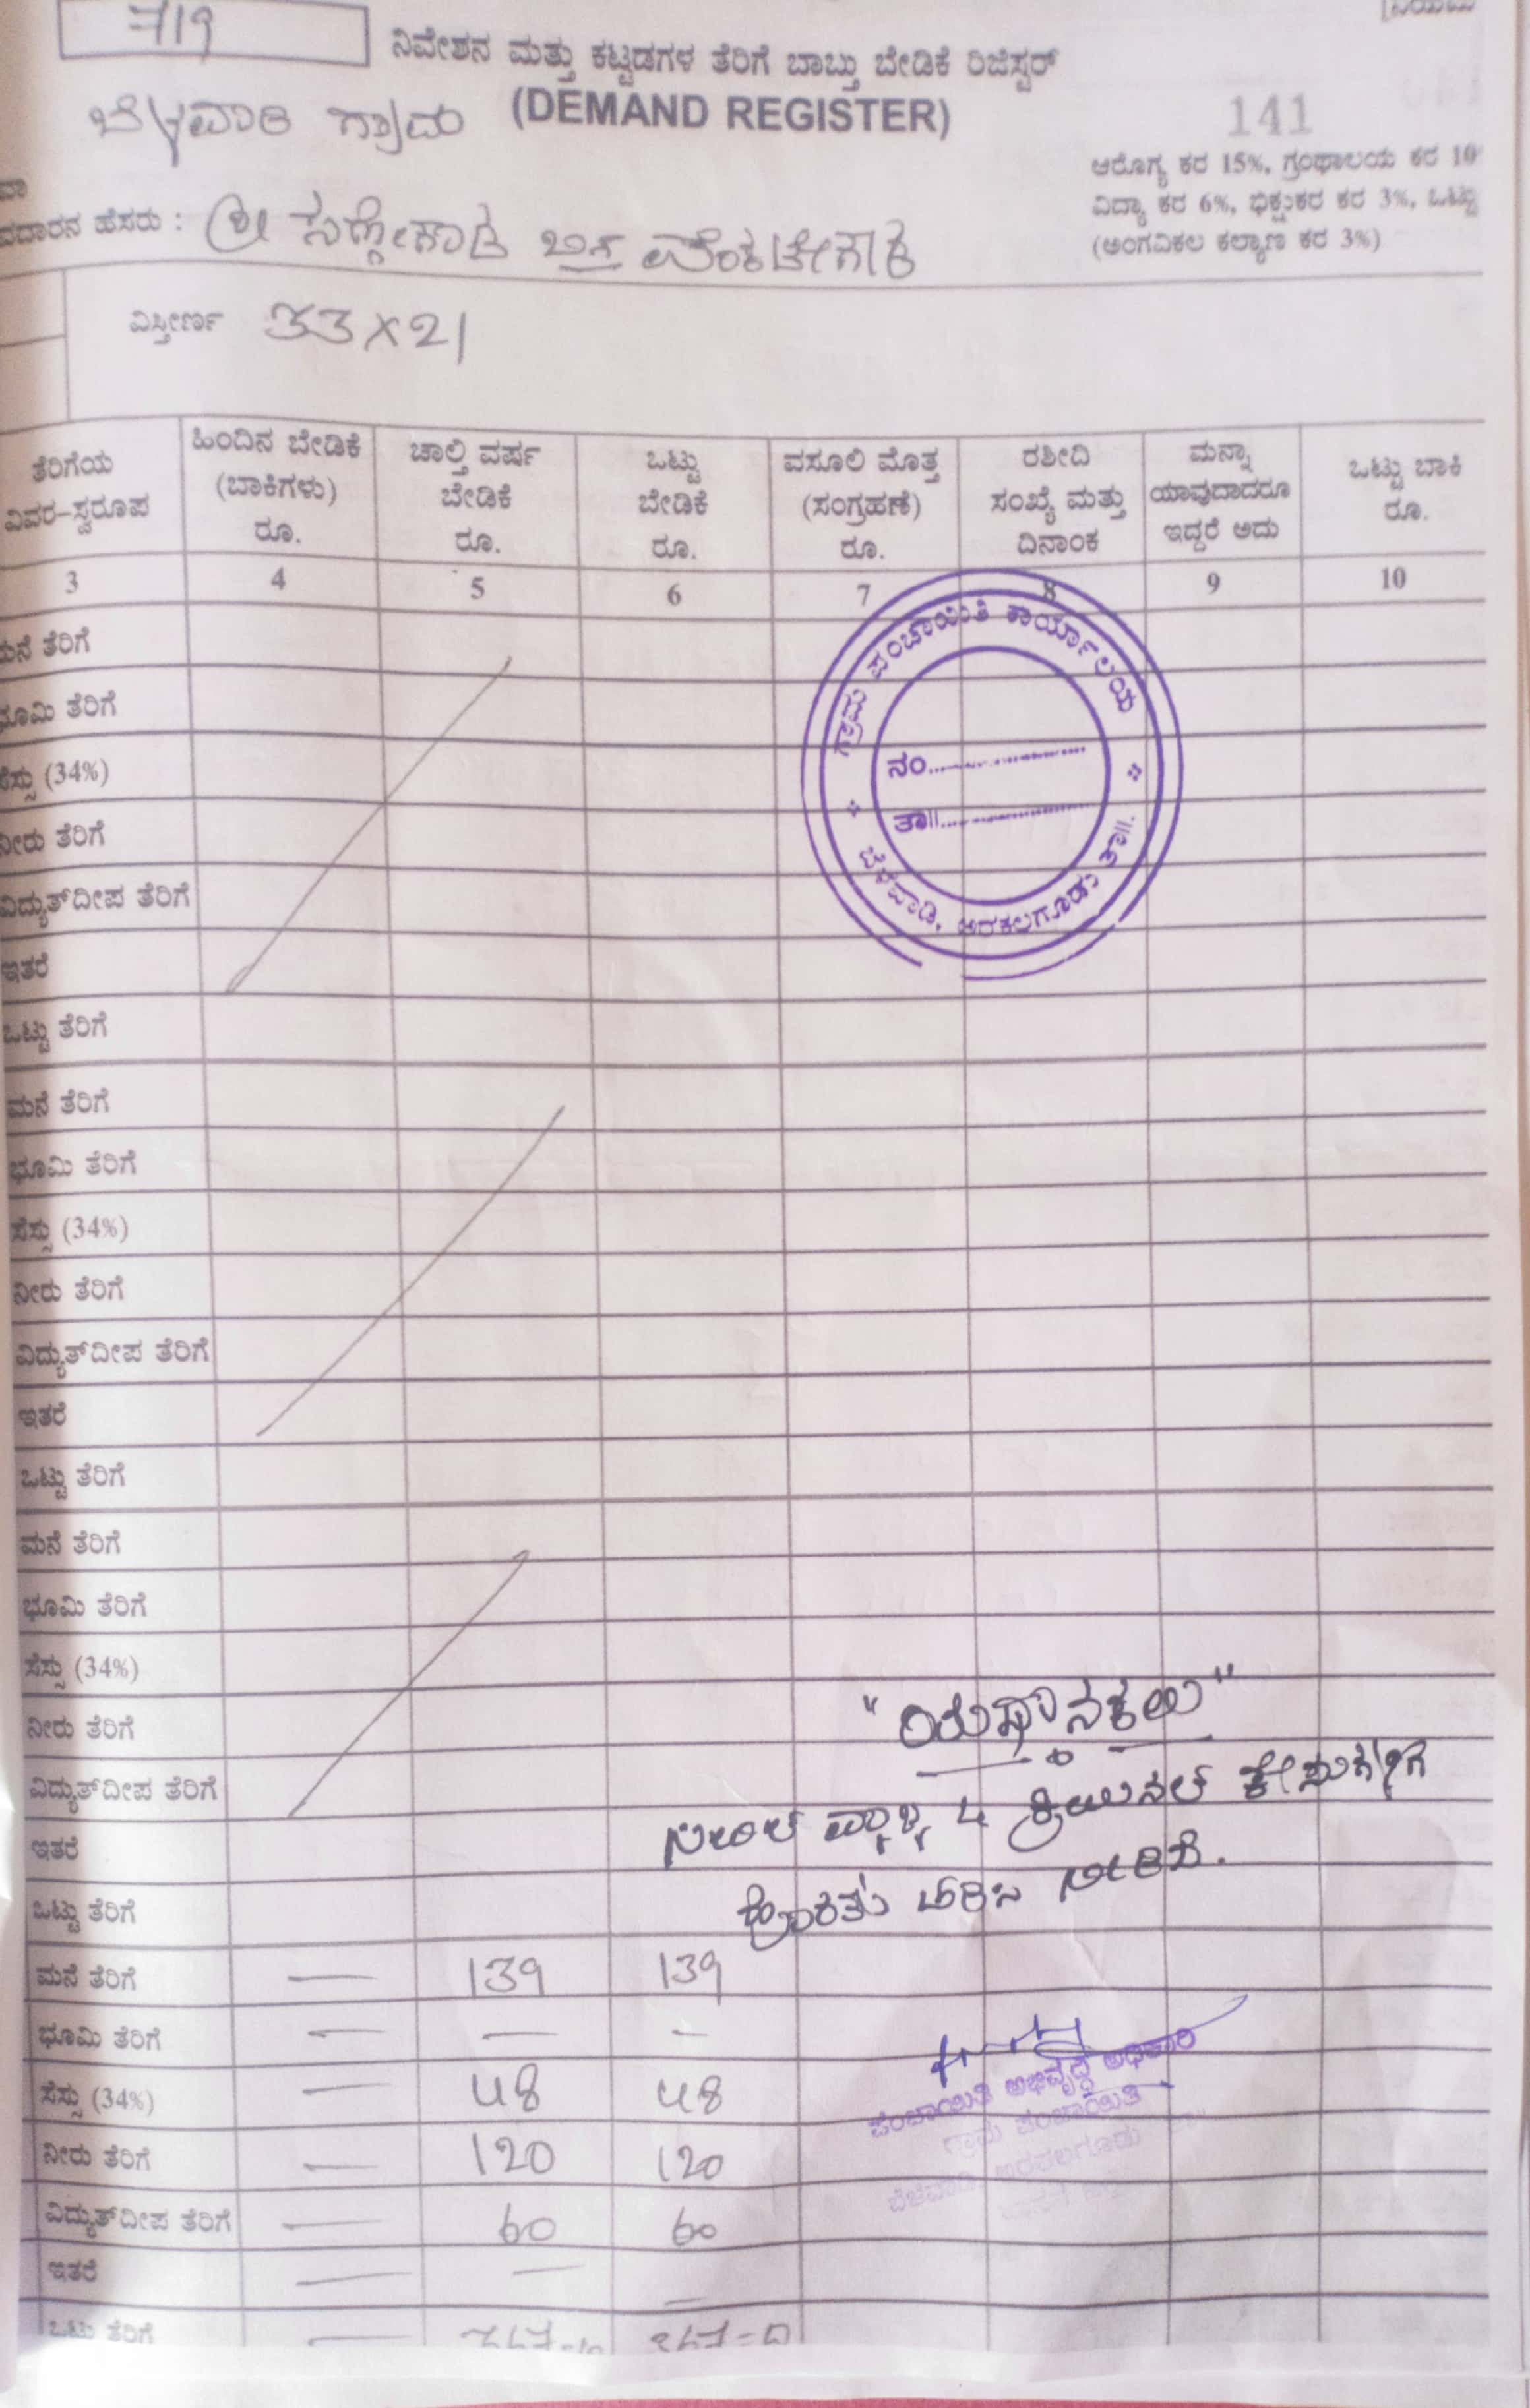 719
ನಿವೇಶನ ಮತ್ತು ಕಟ್ಟಡಗಳ ತೆರಿಗೆ ಬಾಬ್ತು ಬೇಡಿಕೆ ರಿಜಿಸ್ಟರ್
(DEMAND REGISTER)
ಬೆಳವಾಡಿ ಗ್ರಾಮ
141
ಆರೋಗ್ಯ ಕರ 15%, ಗ್ರಂಥಾಲಯ ಕರ 10
ವಿದ್ಯಾ ಕರ 6%, ಭಿಕ್ಷುಕರ ಕರ 3%, ಒಟ್ಟು
(ಅಂಗವಿಕಲ ಕಲ್ಯಾಣ ಕರ 3%)
ದಾರನ ಹೆಸರು : ಶ್ರೀ ಬಿನ್ ವೆಂಕಟೇಗೌಡ
ವಿಸ್ತೀರ್ಣ 33 X 21
ತೆರಿಗೆಯ ವಿವರ-ಸ್ವರೂಪ
ಹಿಂದಿನ ಬೇಡಿಕೆ (ಬಾಕಿಗಳು) ರೂ.
ಚಾಲ್ತಿ ವರ್ಷ ಬೇಡಿಕೆ ರೂ.
ಒಟ್ಟು ಬೇಡಿಕೆ ರೂ.
ವಸೂಲಿ ಮೊತ್ತ (ಸಂಗ್ರಹಣೆ) ರೂ.
ರಶೀದಿ ಸಂಖ್ಯೆ ಮತ್ತು ದಿನಾಂಕ
ಮನ್ನಾ ಯಾವುದಾದರೂ ಇದ್ದರೆ ಅದು
ಒಟ್ಟು ಬಾಕಿ ರೂ.
3 4 5 6 7 8 9 10
ಮನೆ ತೆರಿಗೆ
ಭೂಮಿ ತೆರಿಗೆ
ಸೆಸ್ಸು (34%)
ನೀರು ತೆರಿಗೆ
ವಿದ್ಯುತ್‌ದೀಪ ತೆರಿಗೆ
ಇತರೆ
ಒಟ್ಟು ತೆರಿಗೆ
ಗ್ರಾಮ ಪಂಚಾಯಿತಿ ಕಾರ್ಯಾಲಯ
ನಂ..................
ತಾ||..................
ಬೆಳವಾಡಿ, ಅರಕಲಗೂಡು ತಾ||.
ಮನೆ ತೆರಿಗೆ
ಭೂಮಿ ತೆರಿಗೆ
ಸೆಸ್ಸು (34%)
ನೀರು ತೆರಿಗೆ
ವಿದ್ಯುತ್‌ದೀಪ ತೆರಿಗೆ
ಇತರೆ
ಒಟ್ಟು ತೆರಿಗೆ
ಮನೆ ತೆರಿಗೆ
ಭೂಮಿ ತೆರಿಗೆ
ಸೆಸ್ಸು (34%)
ನೀರು ತೆರಿಗೆ
ವಿದ್ಯುತ್‌ದೀಪ ತೆರಿಗೆ
ಇತರೆ
ಒಟ್ಟು ತೆರಿಗೆ
"ಯಥಾನಕಲು"
ಸಿವಿಲ್ ವ್ಯಾಜ್ಯ ಕ್ರಿಮಿನಲ್ ಕೇಸುಗಳಿಗೆ
ಹೊರತು ಪಡಿಸಿ ನೀಡಿದೆ.
ಮನೆ ತೆರಿಗೆ — 139 139
ಭೂಮಿ ತೆರಿಗೆ — — —
ಸೆಸ್ಸು (34%) — 48 48
ನೀರು ತೆರಿಗೆ — 120 120
ವಿದ್ಯುತ್‌ದೀಪ ತೆರಿಗೆ — 60 60
ಇತರೆ — — —
ಒಟ್ಟು ತೆರಿಗೆ —
ಪಂಚಾಯಿತಿ ಅಭಿವೃದ್ಧಿ ಅಧಿಕಾರಿ
ಗ್ರಾಮ ಪಂಚಾಯಿತಿ
ಬೆಳವಾಡಿ, ಅರಕಲಗೂಡು